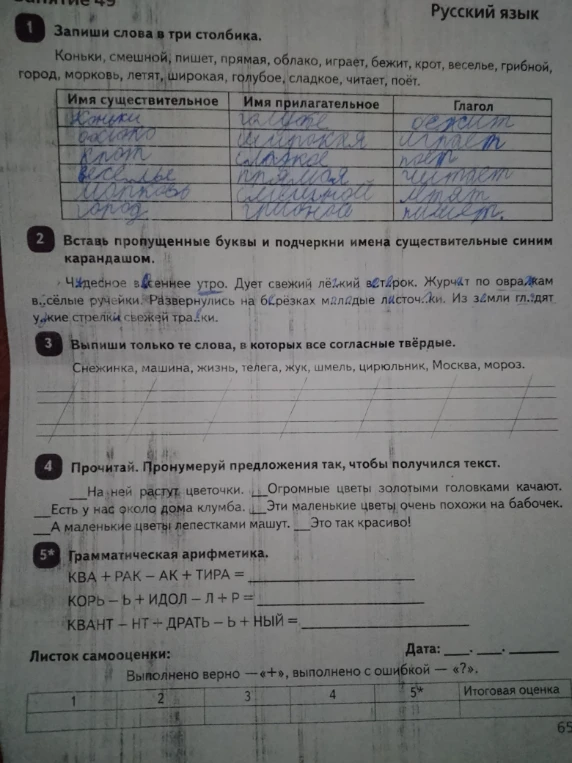 Занятие 49
Русский язык
1 Запиши слова в три столбика.
Коньки, смешной, пишет, прямая, облако, играет, бежит, крот, веселье, грибной,
город, морковь, летят, широкая, голубое, сладкое, читает, поёт.
Имя существительное Имя прилагательное Глагол
Коньки голубое бежит
облако широкая играет
крот сладкое поёт
веселье прямая читает
морковь смешной летят
город грибной пишет.
2 Вставь пропущенные буквы и подчеркни имена существительные синим
карандашом.
Чудесное весеннее утро. Дует свежий лёгкий ветерок. Журчат по овражкам
в..сёлые ручейки. Развернулись на берёзках маладые листочки. Из земли глядят
узкие стрелки свежей травки.
3 Выпиши только те слова, в которых все согласные твёрдые.
Снежинка, машина, жизнь, телега, жук, шмель, цирюльник, Москва, мороз.
4 Прочитай. Пронумеруй предложения так, чтобы получился текст.
__На ней растут цветочки. __Огромные цветы золотыми головками качают.
__Есть у нас около дома клумба. __Эти маленькие цветы очень похожи на бабочек.
__А маленькие цветы лепестками машут. __Это так красиво!
5* Грамматическая арифметика.
КВА + РАК – АК + ТИРА = ____
КОРЬ – Ь + ИДОЛ – Л + Р = ____
КВАНТ – НТ + ДРАТЬ – Ь + НЫЙ = ____
Листок самооценки: Дата: ___.___._____
Выполнено верно — «+», выполнено с ошибкой — «?».
1 2 3 4 5* Итоговая оценка
65